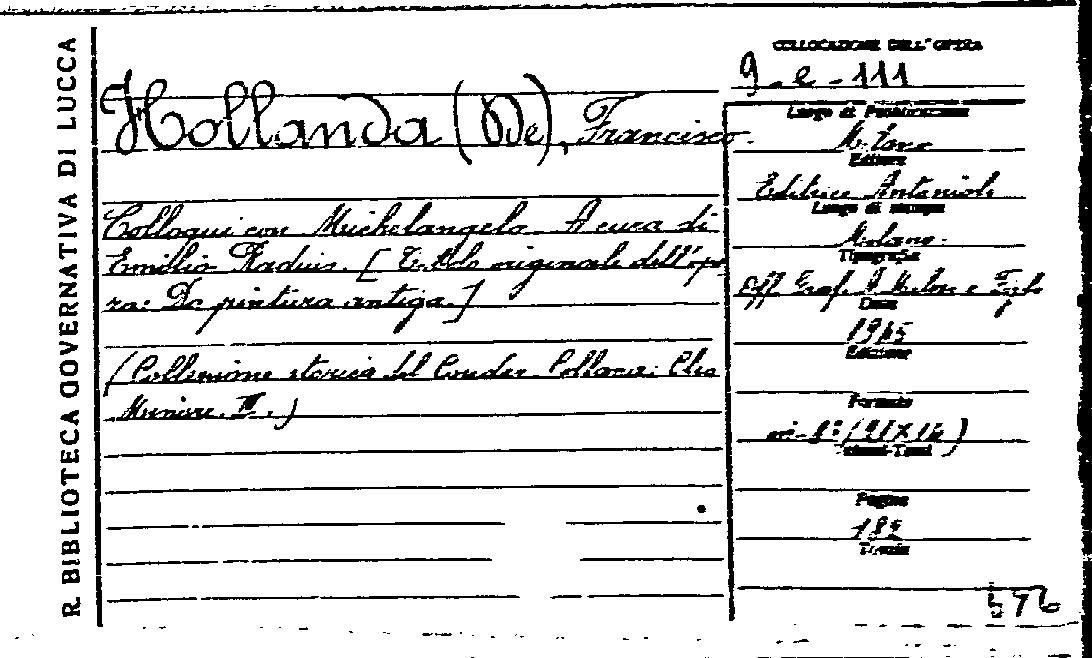 R. BIBLIOTECA GOVERNATIVA DI LUCCA
Hollanda (De), Francisco.
Colloqui con Michelangelo. A cura di
Emilio Radius. [Titolo originale dell'ope
ra: Da pintura antiga.]
(Collezione storica del Collana: Clio
Minore. II.)
COLLOCAZIONE DELL'OPERA
9-e-111
Luogo di Pubblicazione
Milano
Editore
Editrice Antonioli
Luogo di stampa
Milano.
Tipografia
Off. Graf. e Figlio
Data
1945
Edizione
Formato
in-8° (21X14)
Volumi-Tomi
Pagine
185
Tavole
576